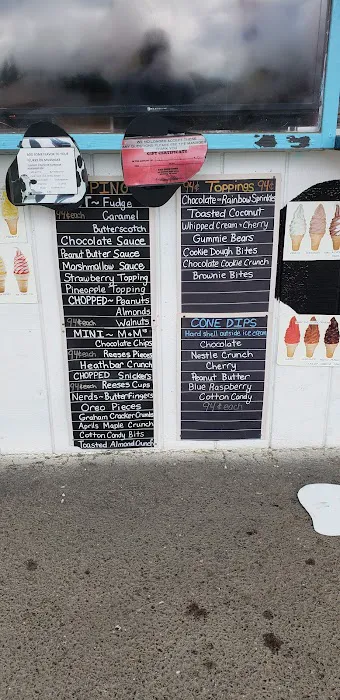 GIFT CERTIFICATE
PING
T~ Fudge
94¢ each Caramel
Butterscotch
Chocolate Sauce
Peanut Butter Sauce
Marshmallow Sauce
Strawberry Topping
Pineapple Topping
CHOPPED~ Peanuts
Almonds
94¢ each Walnuts
MINI~ M+M's
Chocolate Chips
94¢ each Reeses Pieces
Heathbar Crunch
CHOPPED Snickers
94¢ each Reeses Cups
Nerds~ButterFingers
Oreo Pieces
Graham Cracker Crumbs
Aprils Maple Crunch
Cotton Candy Bits
Toasted Almond Crunch
94¢ Toppings 94¢
Chocolate~Rainbow Sprinkles
Toasted Coconut
Whipped Cream~Cherry
Gummie Bears
Cookie Dough Bites
Chocolate Cookie Crunch
Brownie Bites
CONE DIPS
Hard shell outside ice cream
Chocolate
Nestle Crunch
Cherry
Peanut Butter
Blue Raspberry
Cotton Candy
94¢ each